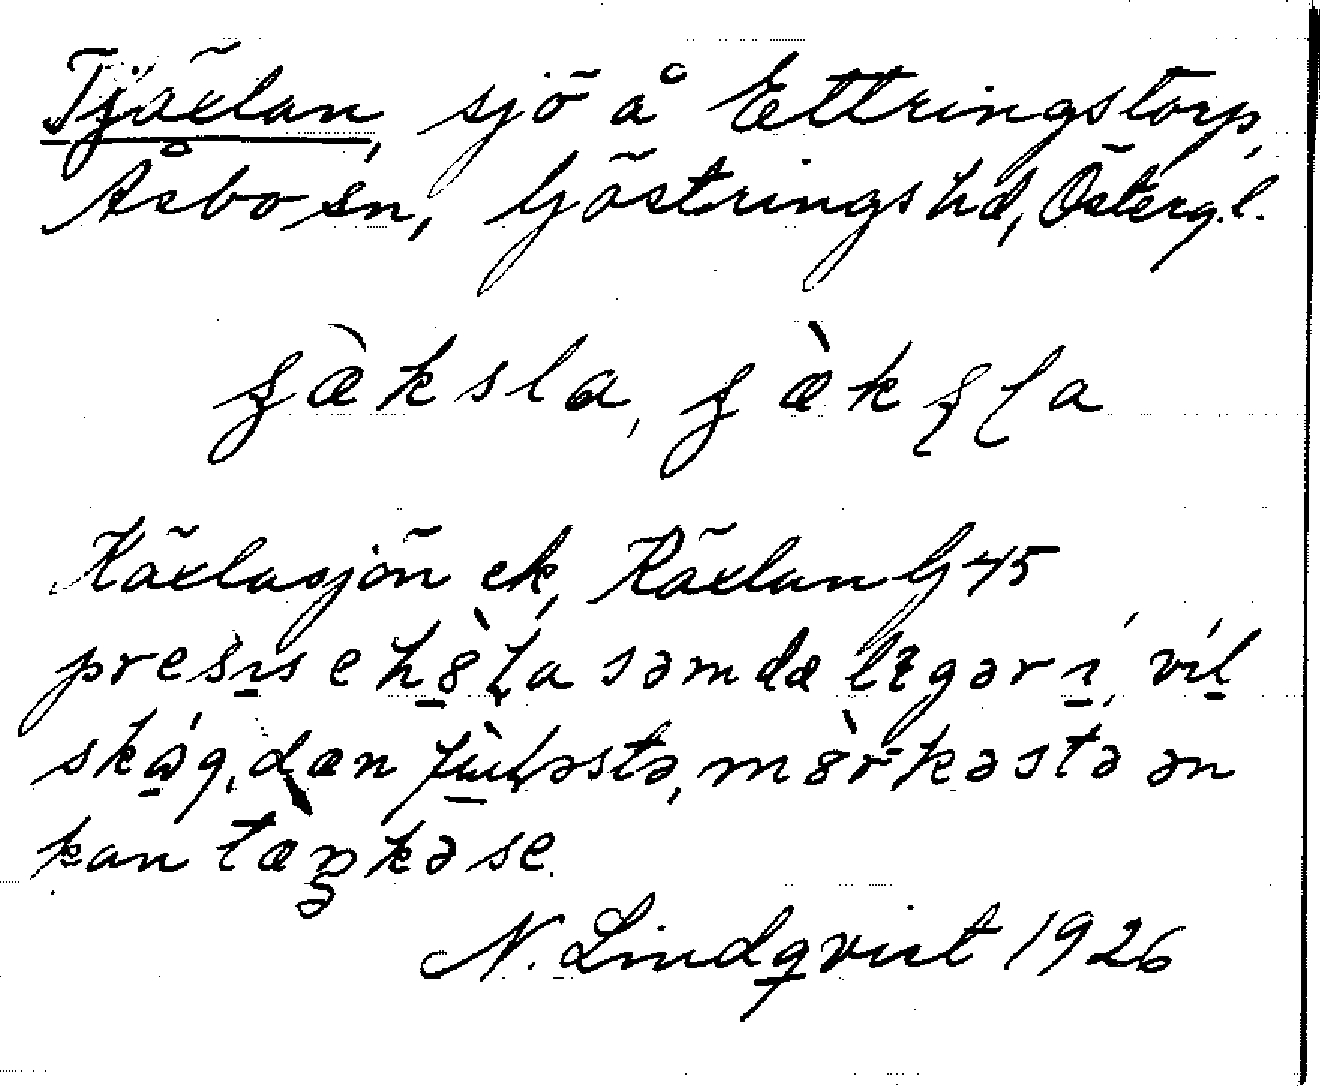 Tjäxlan, sjö å Ettringstorp,
Åsbo sn, Göstrings hd, Östergl.
ʂæ̀ksla, ʂæ̀kʂla
Käxlasjön ek, Käxlan G 45
presıs e hȣ̀la səmdæ lıgər ı́, víl
skág, dæn fùləstə, mȣ̀rkəstə ən
kan tæŋkə se.
N. Lindqvist 1926